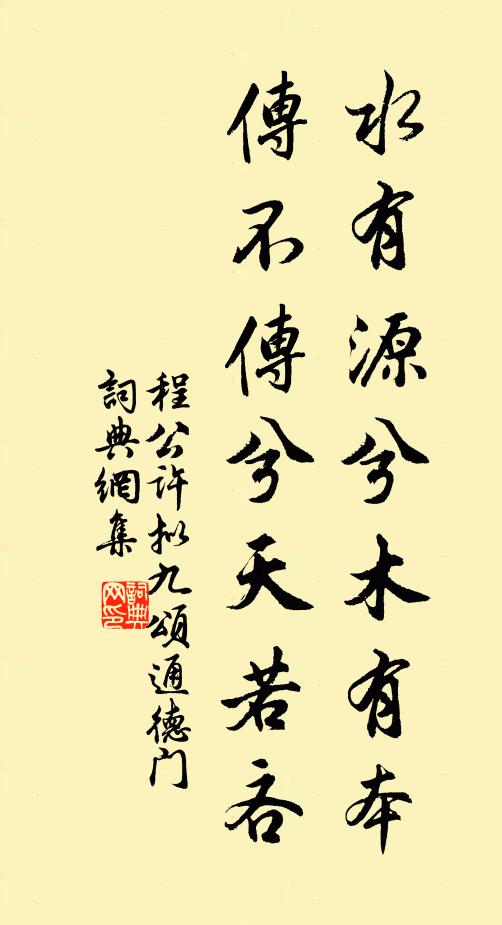 水有源兮木有本
傳不傳兮天若吝
程公許拟九頌通德门
詞典網集
詞典网印